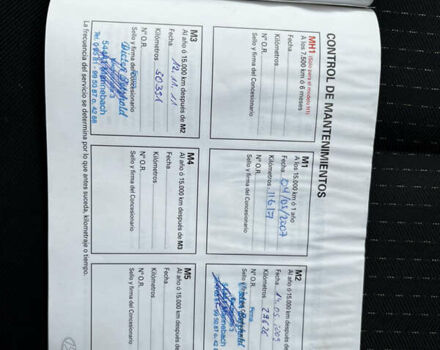 CONTROL DE MANTENIMIENTOS
MH1 (Sólo para el modelo H1)
A los 7.500 km ó 6 meses
Fecha
Kilómetros
Nº O.R.
Sello y firma del Concesionario
M1
A los 15.000 km ó 1 año
Fecha 04/05/2007
Kilómetros
Nº O.R.
Sello y firma del Concesionario
M2
Al año ó 15.000 km después de
Fecha
Kilómetros
Nº O.R.
M3
Al año ó 15.000 km después de M2
Fecha 12.11.11
Kilómetros 50351
Nº O.R.
Sello y firma del Concesionario
M4
Al año ó 15.000 km después de M3
Fecha
Kilómetros
Nº O.R.
Sello y firma del Concesionario
M5
Al año ó 15.000 km después de
Fecha
Kilómetros
Nº O.R.
Sello y firma del Concesionario
La frecuencia del servicio se determina por lo que antes suceda, kilometraje o tiempo.